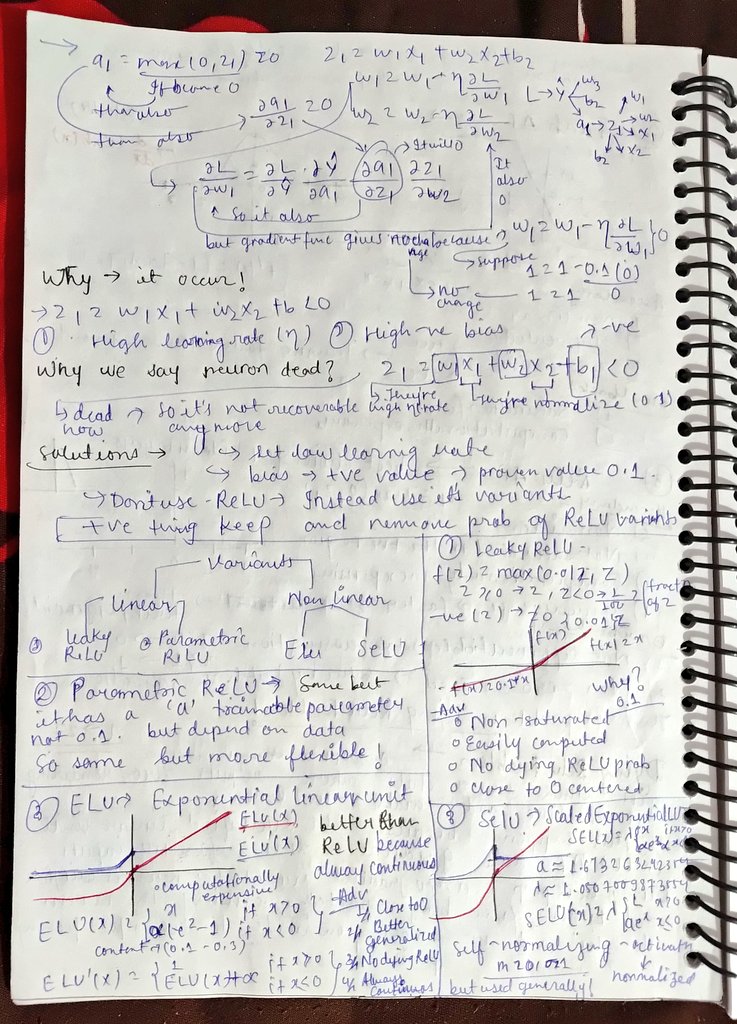 → a₁ = max(0, z₁) = 0    z₁ = w₁x₁ + w₂x₂ + b₂
If become 0
than also
than also → ∂a₁/∂z₁ = 0
w₁ = w₁ - η ∂L/∂w₁
w₂ = w₂ - η ∂L/∂w₂
L → Ŷ
w₃
b₂
a₁ → z₁
w₁
w₂
x₁
x₂
b₂
It will 0
→ ∂L/∂w₁ = ∂L/∂Ŷ · ∂Ŷ/∂a₁ · ∂a₁/∂z₁ · ∂z₁/∂w₂
It also 0
So it also
but gradient func gives no change because → w₁ = w₁ - η ∂L/∂w₁ } 0
suppose
1 = 1 - 0.1 (0)
no change ← 1 = 1    0
Why → it occur!
→ z₁ = w₁x₁ + w₂x₂ + b < 0
① High learning rate (η) ② High -ve bias
→ -ve
Why we say neuron dead?    z₁ = w₁x₁ + w₂x₂ + b₁ < 0
→ They're high η rate → They're normalize (0 1)
↳ dead now → So it's not recoverable any more
Solutions → ↳ set low learning rate
↳ bias → +ve value → proven value 0.1.
↳ Don't use ReLU → Instead use it's variants
+ve thing keep and remove prob of ReLU variants
Variants
Linear    Non linear
① Leaky ReLU    ② Parametric ReLU    Elu    SeLU
① Leaky ReLU -
f(z) = max(0.01z, z)
z ≥ 0 → z, z < 0 → 1/100 z (fract of z)
-ve (z) → ≠0 } 0.01z
f(x)
f(x) = x
f(x) = 0.1*x
Why? 0.1
Adv
o Non-saturated
o Easily computed
o No dying ReLU prob
o close to 0 centered
② Parametric ReLU → Same but
it has a 'a' trainable parameter
not 0.1. but depend on data
So same but more flexible!
③ ELU → Exponential linear unit
ELU(x)
ELU'(x)
better than ReLU because always continuous
• computationally expensive
ELU(x) = { x if x > 0
α(eˣ - 1) if x < 0
constant → (0.1 - 0.3)
ELU'(x) = { 1 if x > 0
ELU(x) + α if x < 0
Adv
1/ Close to 0
2/ Better generalized
3/ No dying ReLU
4/ Always continuous
④ SeLU → Scaled Exponential LU
SEL(x) = λ { x if x > 0
a ≈ 1.6732632423543
λ ≈ 1.0507009873554
SELU'(x) = λ { 1 x > 0
αeˣ x ≤ 0
Self-normalizing → activatn
normalized
but used generally!